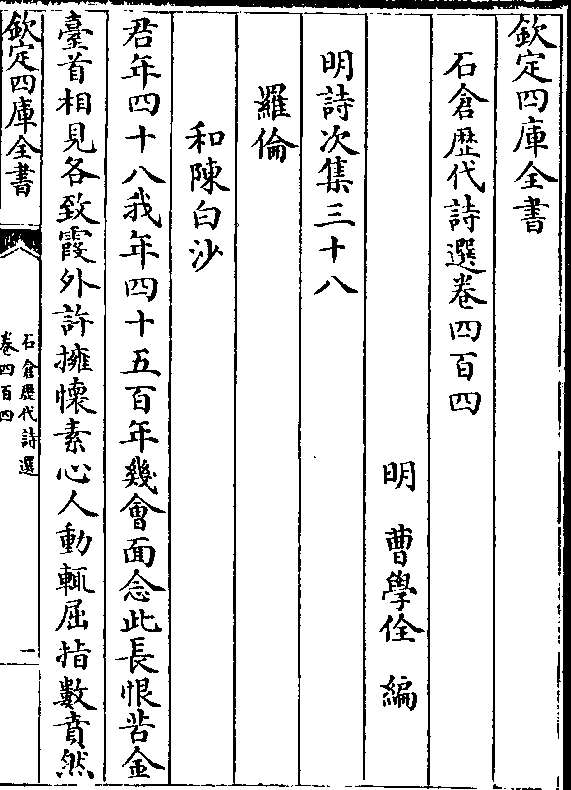 欽定四庫全書
石倉歷代詩選卷四百四
明 曹學佺 編
明詩次集三十八
羅倫
和陳白沙
君年四十八我年四十五百年幾會面念此長恨苦金
臺首相見各致霞外許擁懷素心人動輒屈指數賁然
欽定四庫全書
石倉歷代詩選
卷四百四
一